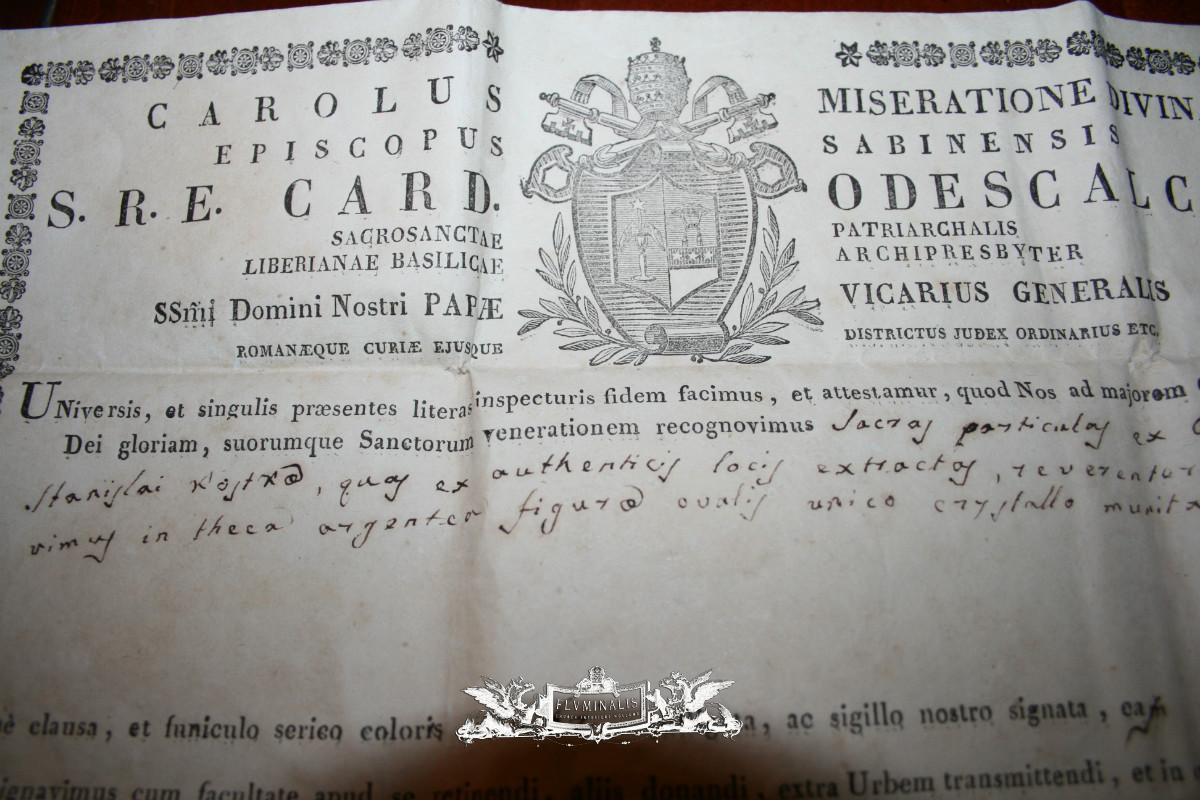 CAROLUS MISERATIONE DIVIN
EPISCOPUS SABINENSIS
S. R. E. CARD. ODESCALC
SACROSANCTAE PATRIARCHALIS
LIBERIANAE BASILICAE ARCHIPRESBYTER
SSm̃i Domini Nostri PAPÆ VICARIUS GENERALIS
ROMANÆQUE CURIÆ EJUSQUE DISTRICTUS JUDEX ORDINARIUS ETC.
UNiversis, et singulis præsentes literas inspecturis fidem facimus, et attestamur, quod Nos ad majorem
Dei gloriam, suorumque Sanctorum venerationem recognovimus Sacras particulas ex
Stanislai Kostkæ, quas ex authenticis locis extractas, reverenter
vimus in theca argentea figuræ ovalis unico crystallo munita
clausa, et funiculo serico coloris ac sigillo nostro signata, eas
ignavimus cum facultate apud se retinendi, aliis donandi, extra Urbem transmittendi, et in
FLVMINALIS